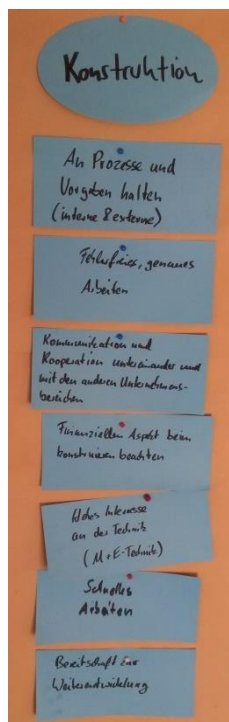 Konstruktion
An Prozesse und
Vorgaben halten
(interne & externe)
Fehlerfreies, genaues
Arbeiten
Kommunikation und
Kooperation untereinander und
mit den anderen Unternehmens-
bereichen
Finanziellen Aspekt beim
konstruieren beachten
Hohes Interesse
an der Technik
(M+E-Technik)
Schnelles
Arbeiten
Bereitschaft zur
Weiterentwicklung